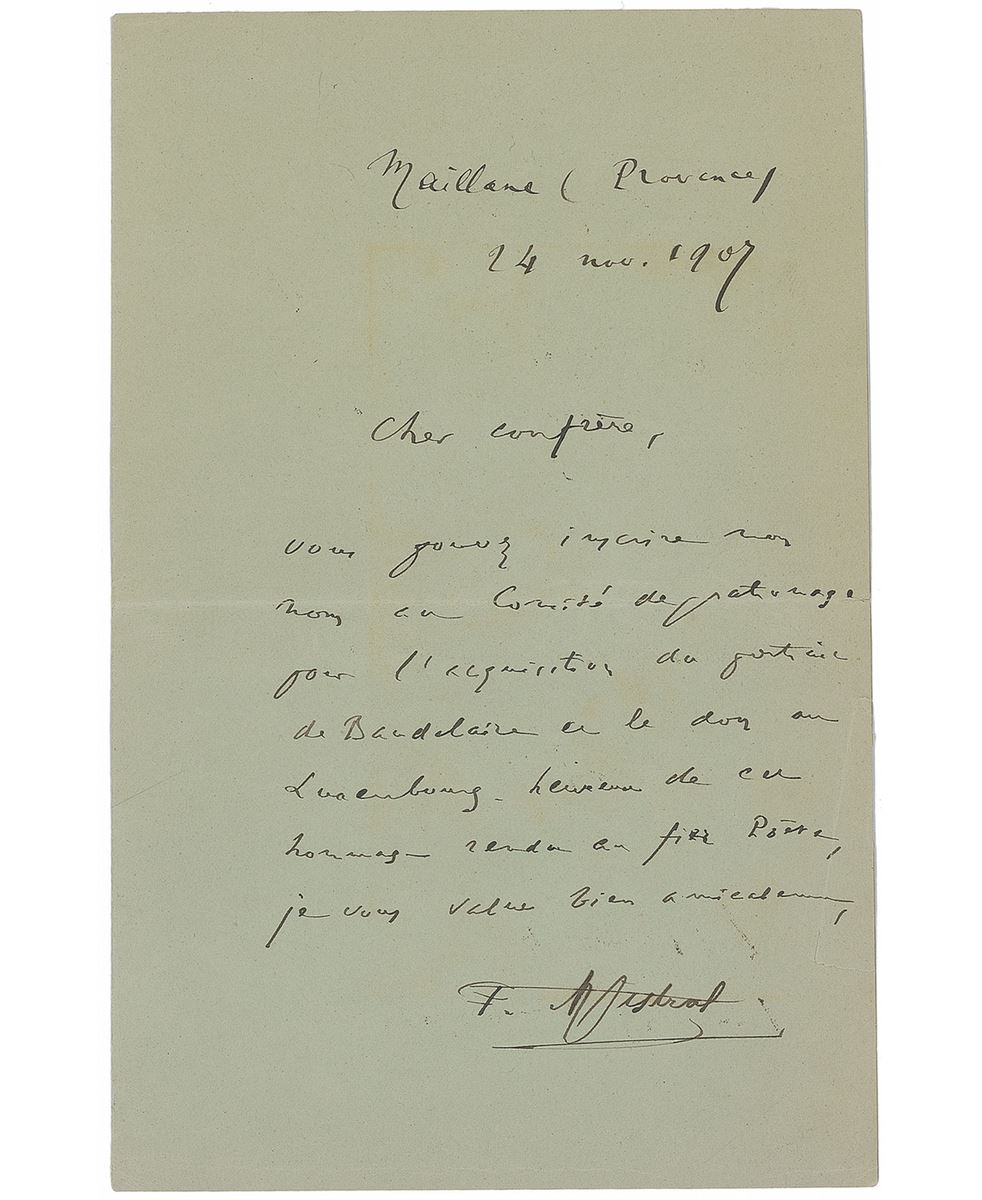 Maillane (Provence)
24 nov. 1907
Cher confrère,
vous pouvez inscrire mon
nom au Comité de patronage
pour l'acquisition du portrait
de Baudelaire et le don au
Luxembourg. heureux de cet
hommage rendu au fier Poète,
je vous salue bien amicalement,
F. Mistral